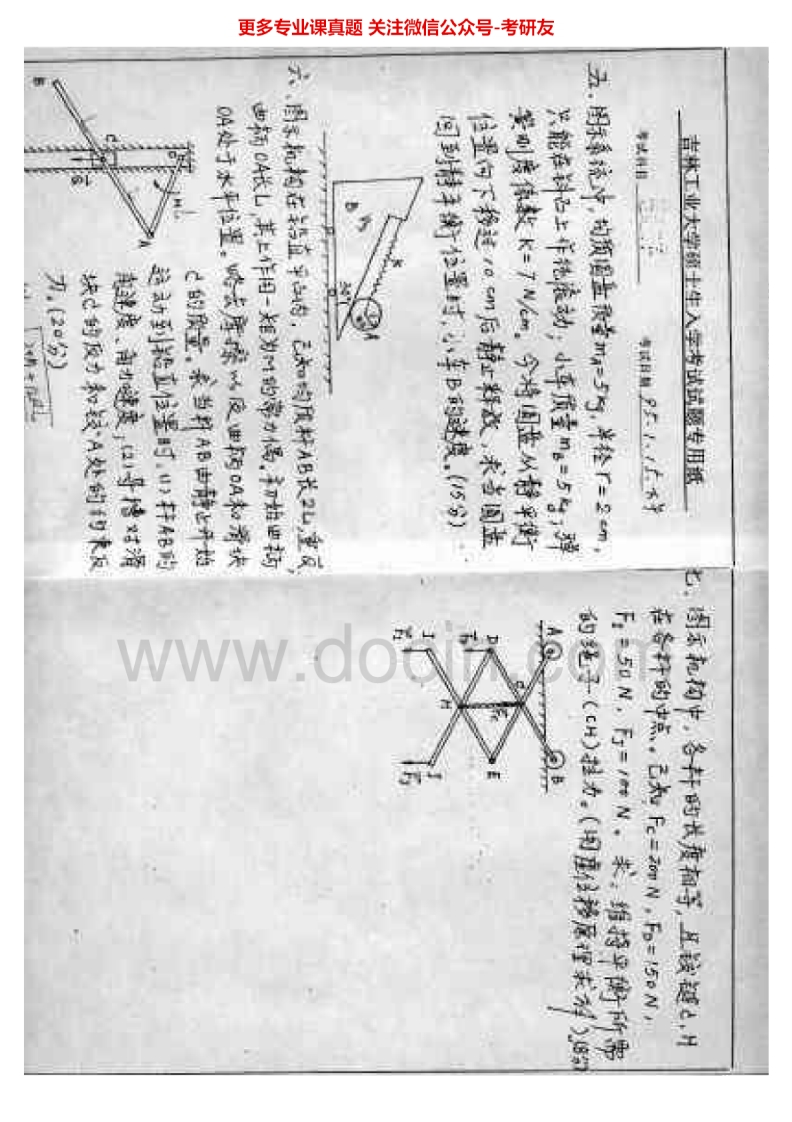 更多专业课真题 关注微信公众号-考研友
吉林工业大学硕士生入学考试试题专用纸
考试科目
考试日期 95.1.15
五、图示系统中,均质圆盘质量mA=5kg,半径r=2cm,
只能在斜面上作纯滚动;小车质量mB=5kg;弹
簧刚度系数K=7N/cm。今将圆盘从静平衡
位置向下移过10cm后静止释放,求当圆盘
回到静平衡位置时,小车B的速度。(15分)
B
K
A
30°
六、图示机构在铅直平面内,已知均质杆AB长2L,重Q,
曲柄OA长L,其上作用一矩为M的常力偶。初始曲柄
OA处于水平位置。略去摩擦以及曲柄OA和滑块
C的质量。求当杆AB由静止开始
运动到铅直位置时,(1)杆AB的
角速度、角加速度;(2)导槽对滑
块C的反力和铰A处的约束反
力。(20分)
B
C
O
M
L
A
Q
七、图示机构中,各杆的长度相等,且铰链C、H
在各杆的中点。已知FC=200N,FD=150N,
FI=50N,FJ=100N。求:维持平衡所需
的绳子(CH)拉力。(用虚位移原理求解)
A
B
C
FC
D
FD
E
H
I
FI
J
FJ
www.docin.com